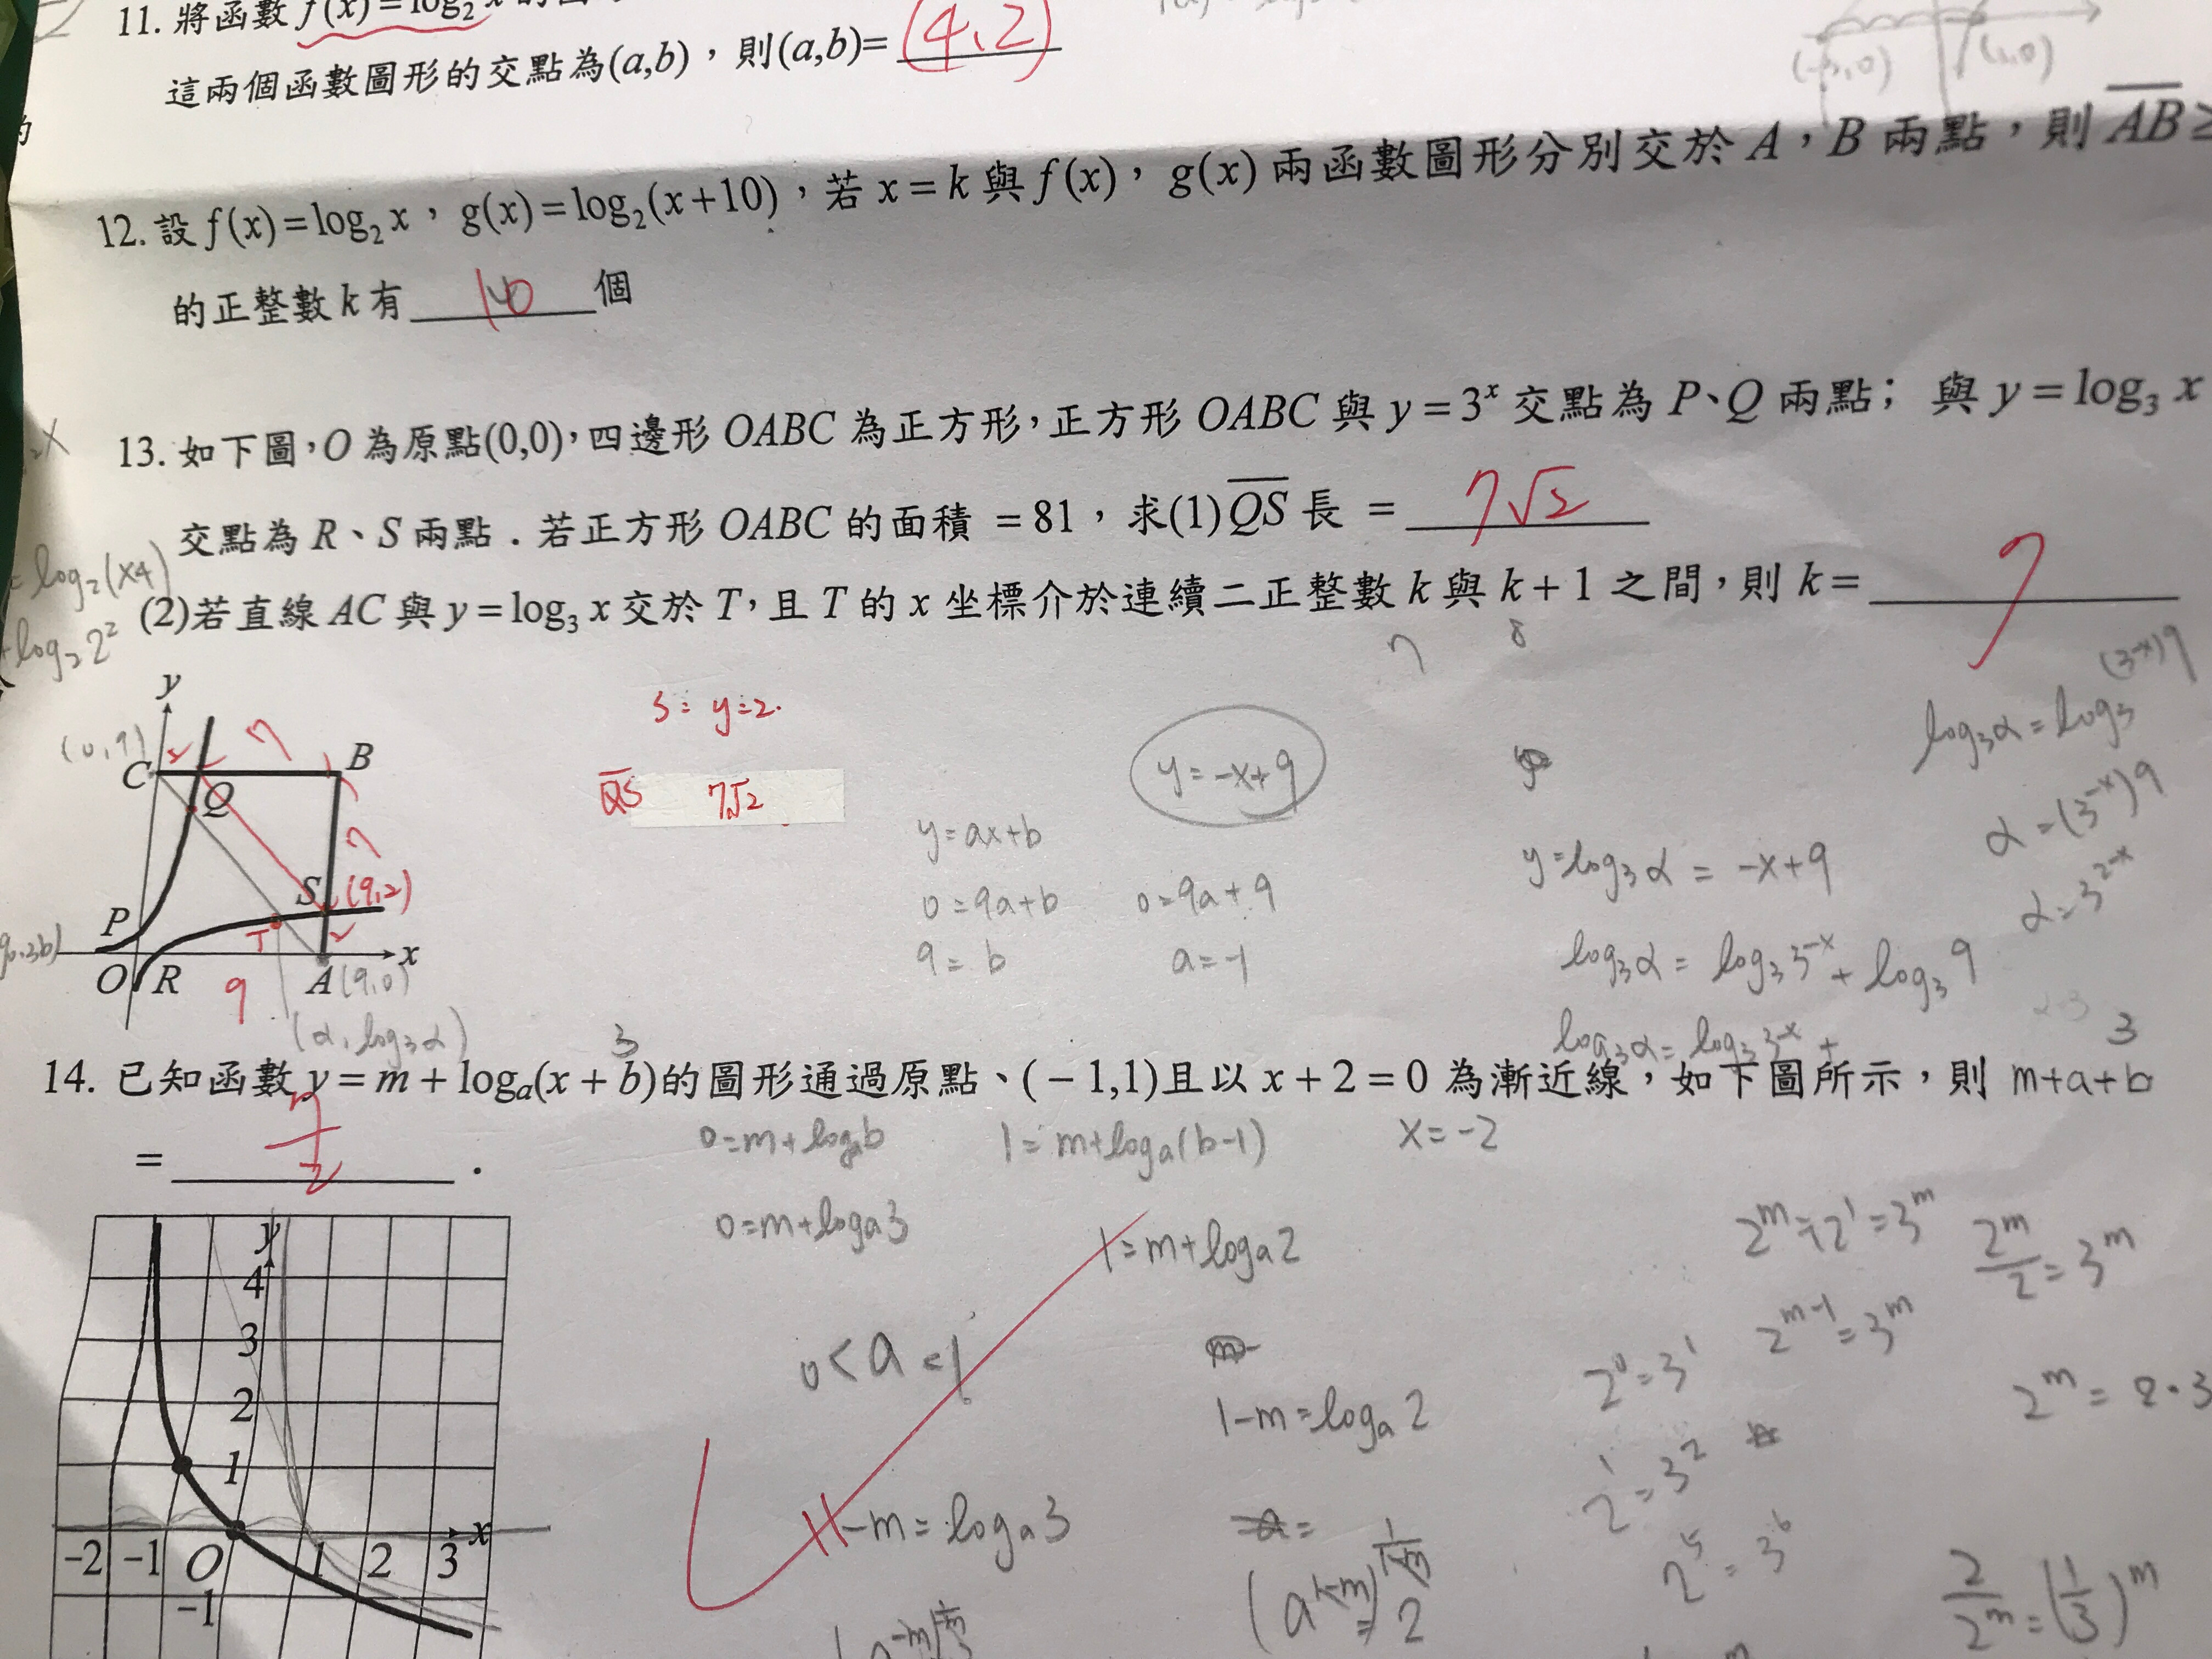 11. 將函數 f(x)=log₂x
這兩個函數圖形的交點為(a,b)，則(a,b)= (4,2)
(1,0)
12. 設 f(x)=log₂x，g(x)=log₂(x+10)，若 x=k 與 f(x)，g(x) 兩函數圖形分別交於 A，B 兩點，則 AB≥
的正整數 k 有 10 個
13. 如下圖，O 為原點(0,0)，四邊形 OABC 為正方形，正方形 OABC 與 y=3ˣ 交點為 P、Q 兩點； 與 y=log₃x
交點為 R、S 兩點．若正方形 OABC 的面積 =81，求(1) QS 長 = 7√2
(2)若直線 AC 與 y=log₃x 交於 T，且 T 的 x 坐標介於連續二正整數 k 與 k+1 之間，則 k= 7
7 8
=log₂(x4)
+log₂2²
S: y=2.
QS 7√2
y=-x+9
y=ax+b
0=9a+b 0=9a+9
9=b a=-1
(3⁻ˣ)9
log₃α=log₃
α=(3⁻ˣ)9
α=3²⁻ˣ
y=log₃α=-x+9
log₃α=log₃3⁻ˣ+log₃9
log₃α=log₃3⁻ˣ+
y
(0,9)
C B
7
Q
7
S (9,2)
P T x
O R 9 A (9,0)
(α,log₃α)
3 3
14. 已知函數 y=m+logₐ(x+b)的圖形通過原點、(−1,1)且以 x+2=0 為漸近線，如下圖所示，則 m+a+b
= 7/2 .
0=m+logₐb 1=m+logₐ(b-1) x=-2
0=m+logₐ3 1=m+logₐ2
0<a<1
1-m=logₐ2
-m=logₐ3
2ᵐ÷2¹=3ᵐ
2ᵐ/2=3ᵐ
2ᵐ⁻¹=3ᵐ
2⁰=3¹
2ᵐ=2·3
2¹=3²
2⁵=3⁶
2/2ᵐ=(1/3)ᵐ
y
4
3
2
1
-2 -1 O 1 2 3 x
-1